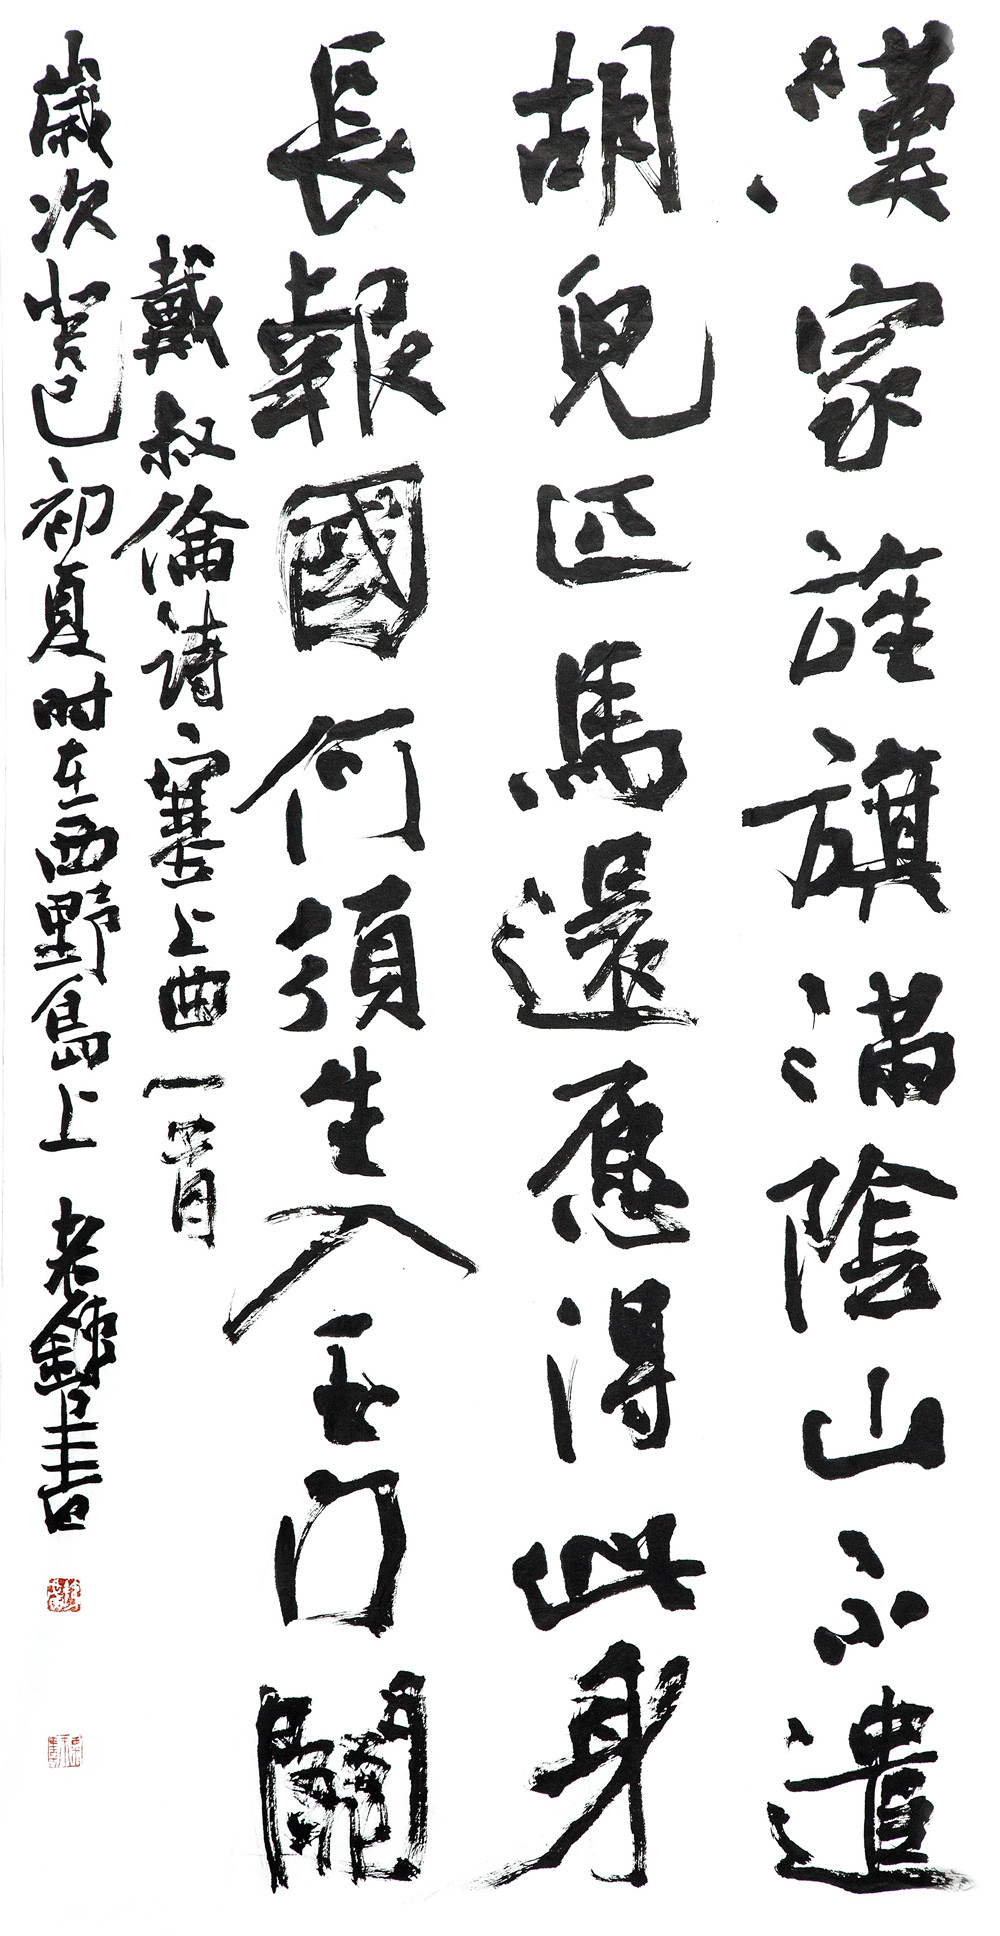 漢家旌旗滿陰山不遣
胡兒匹馬還愿得此身
長報國何須生入玉门關
戴叔倫诗塞上曲一首
歲次癸巳初夏时在西野島上 老書